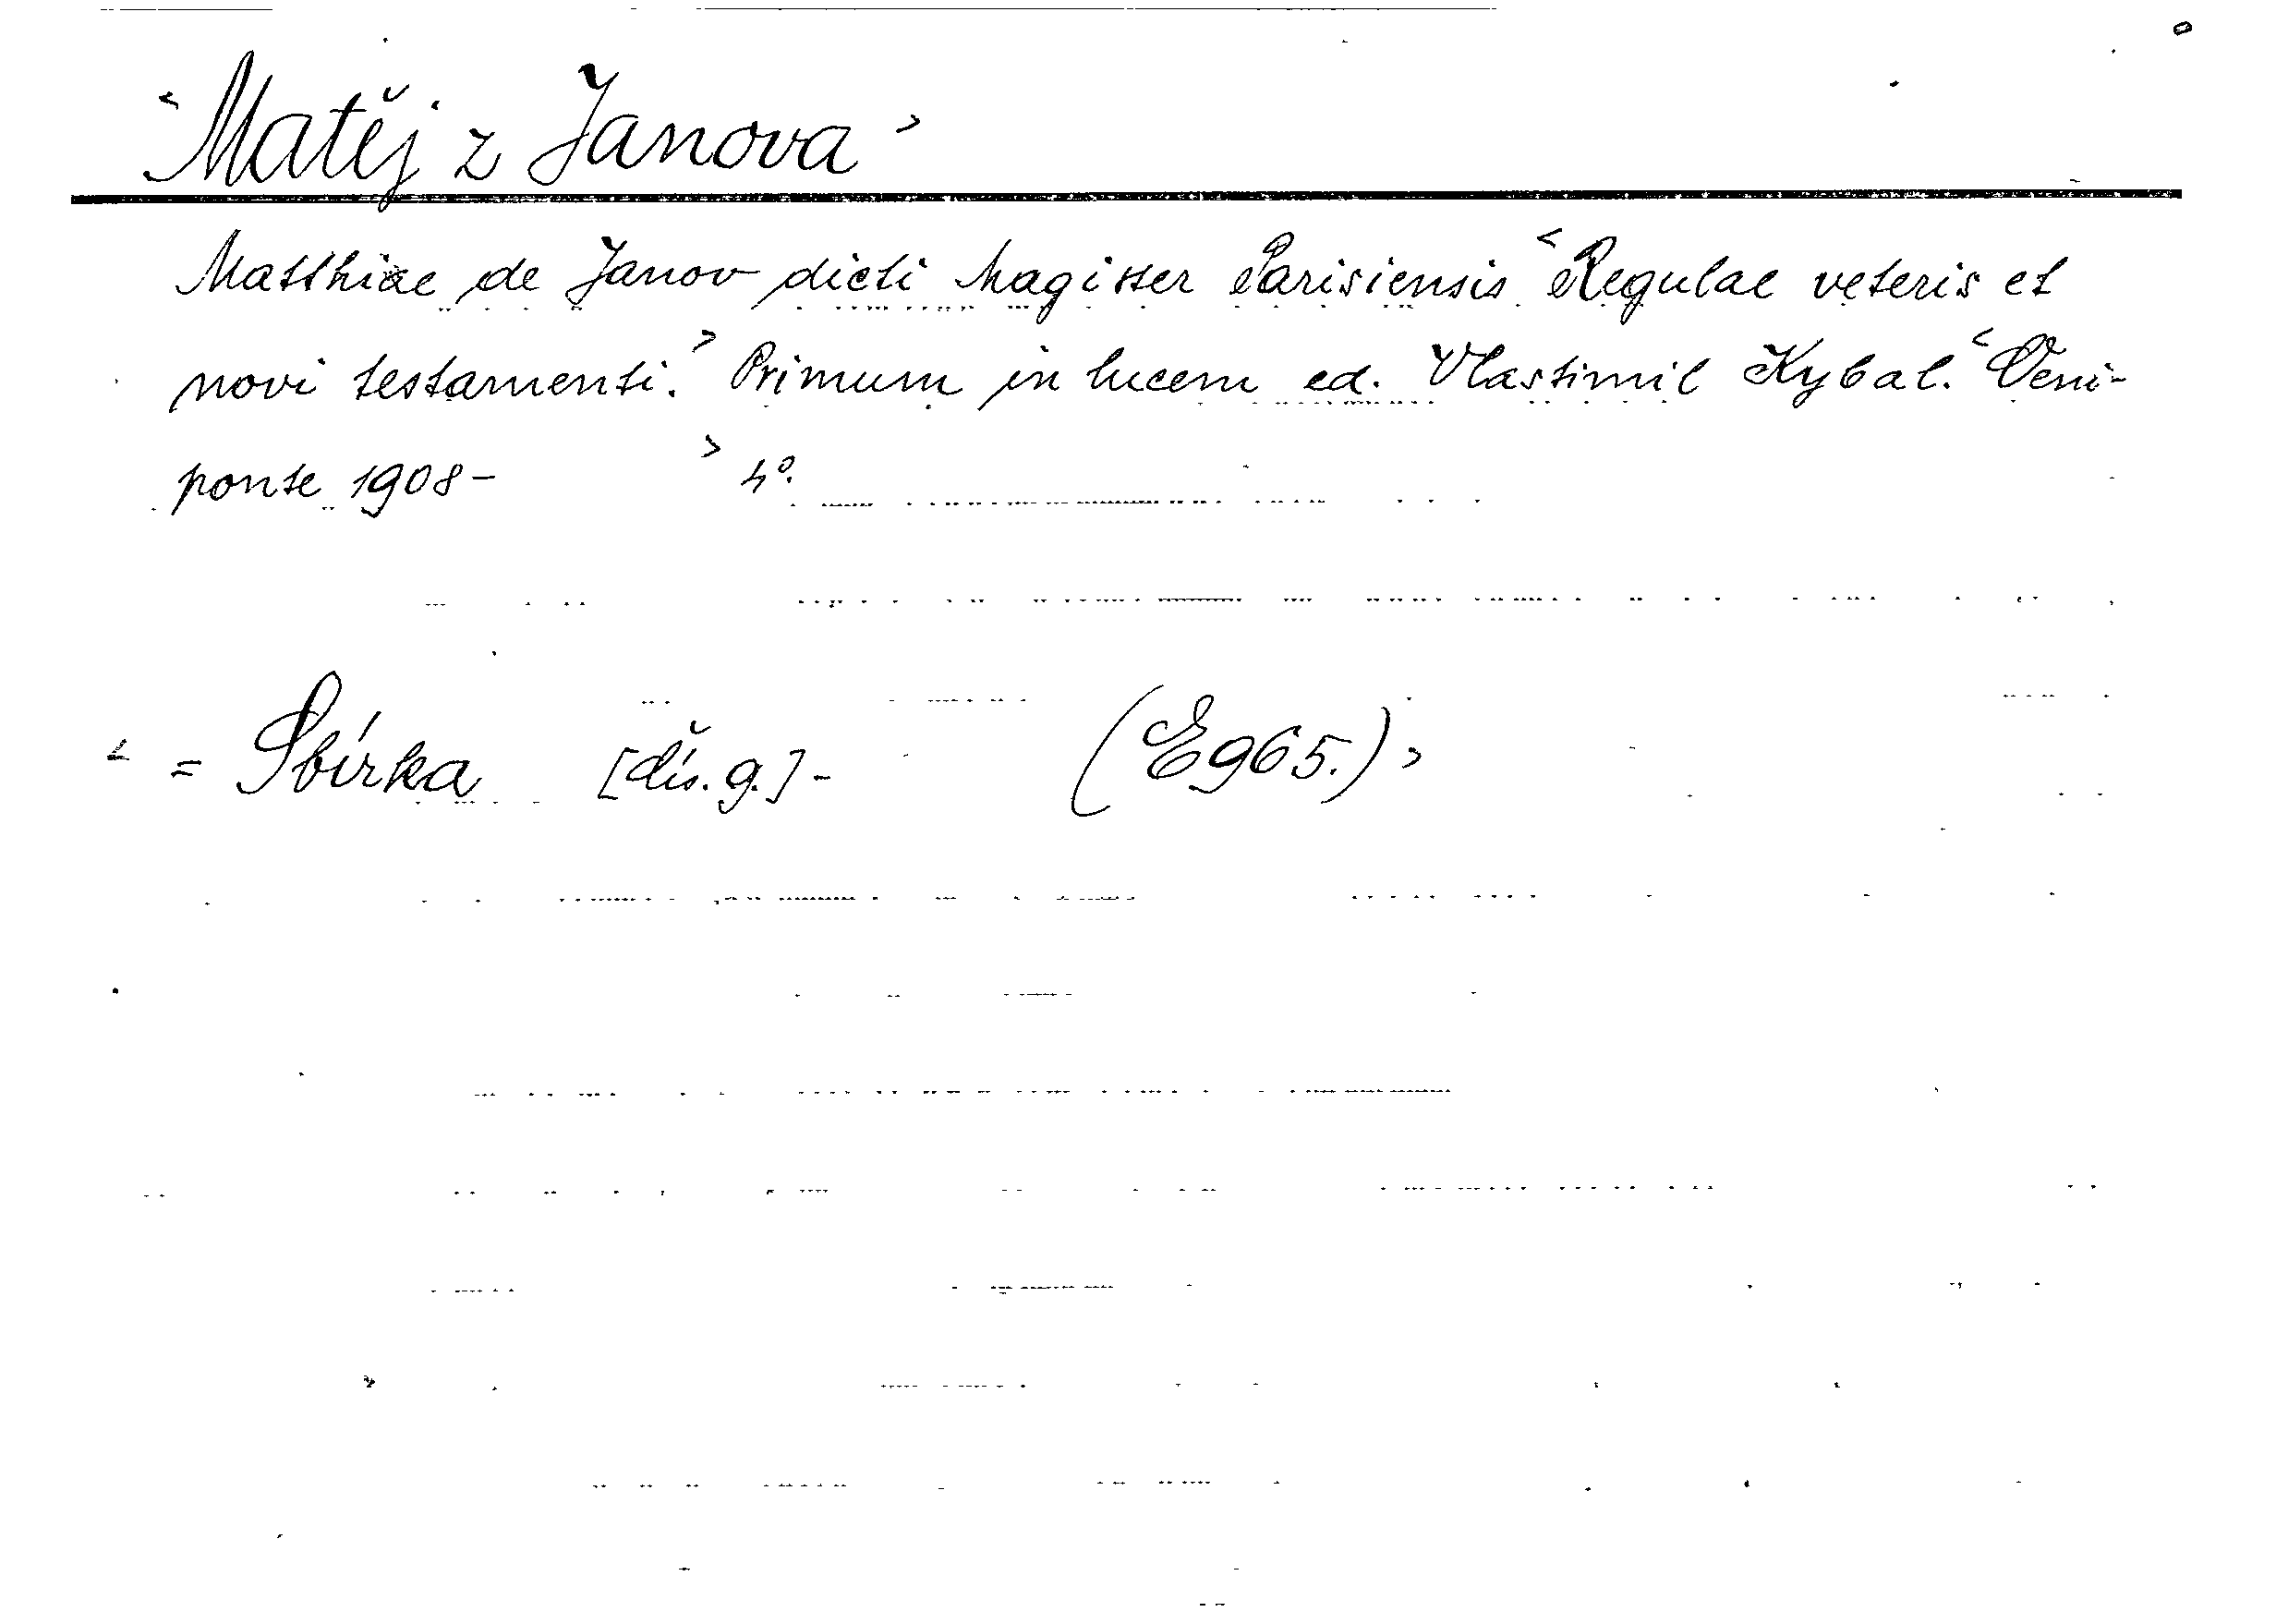 <Matěj z Janova>
Matthiae de Janov dicti Magister Parisiensis <Regulae veteris et
novi testamenti.> Primum in lucem ed. Vlastimil Kybal. <Oeni-
ponte 1908- > 4°.
< = Sbírka [dís. g.] - (E965.)>